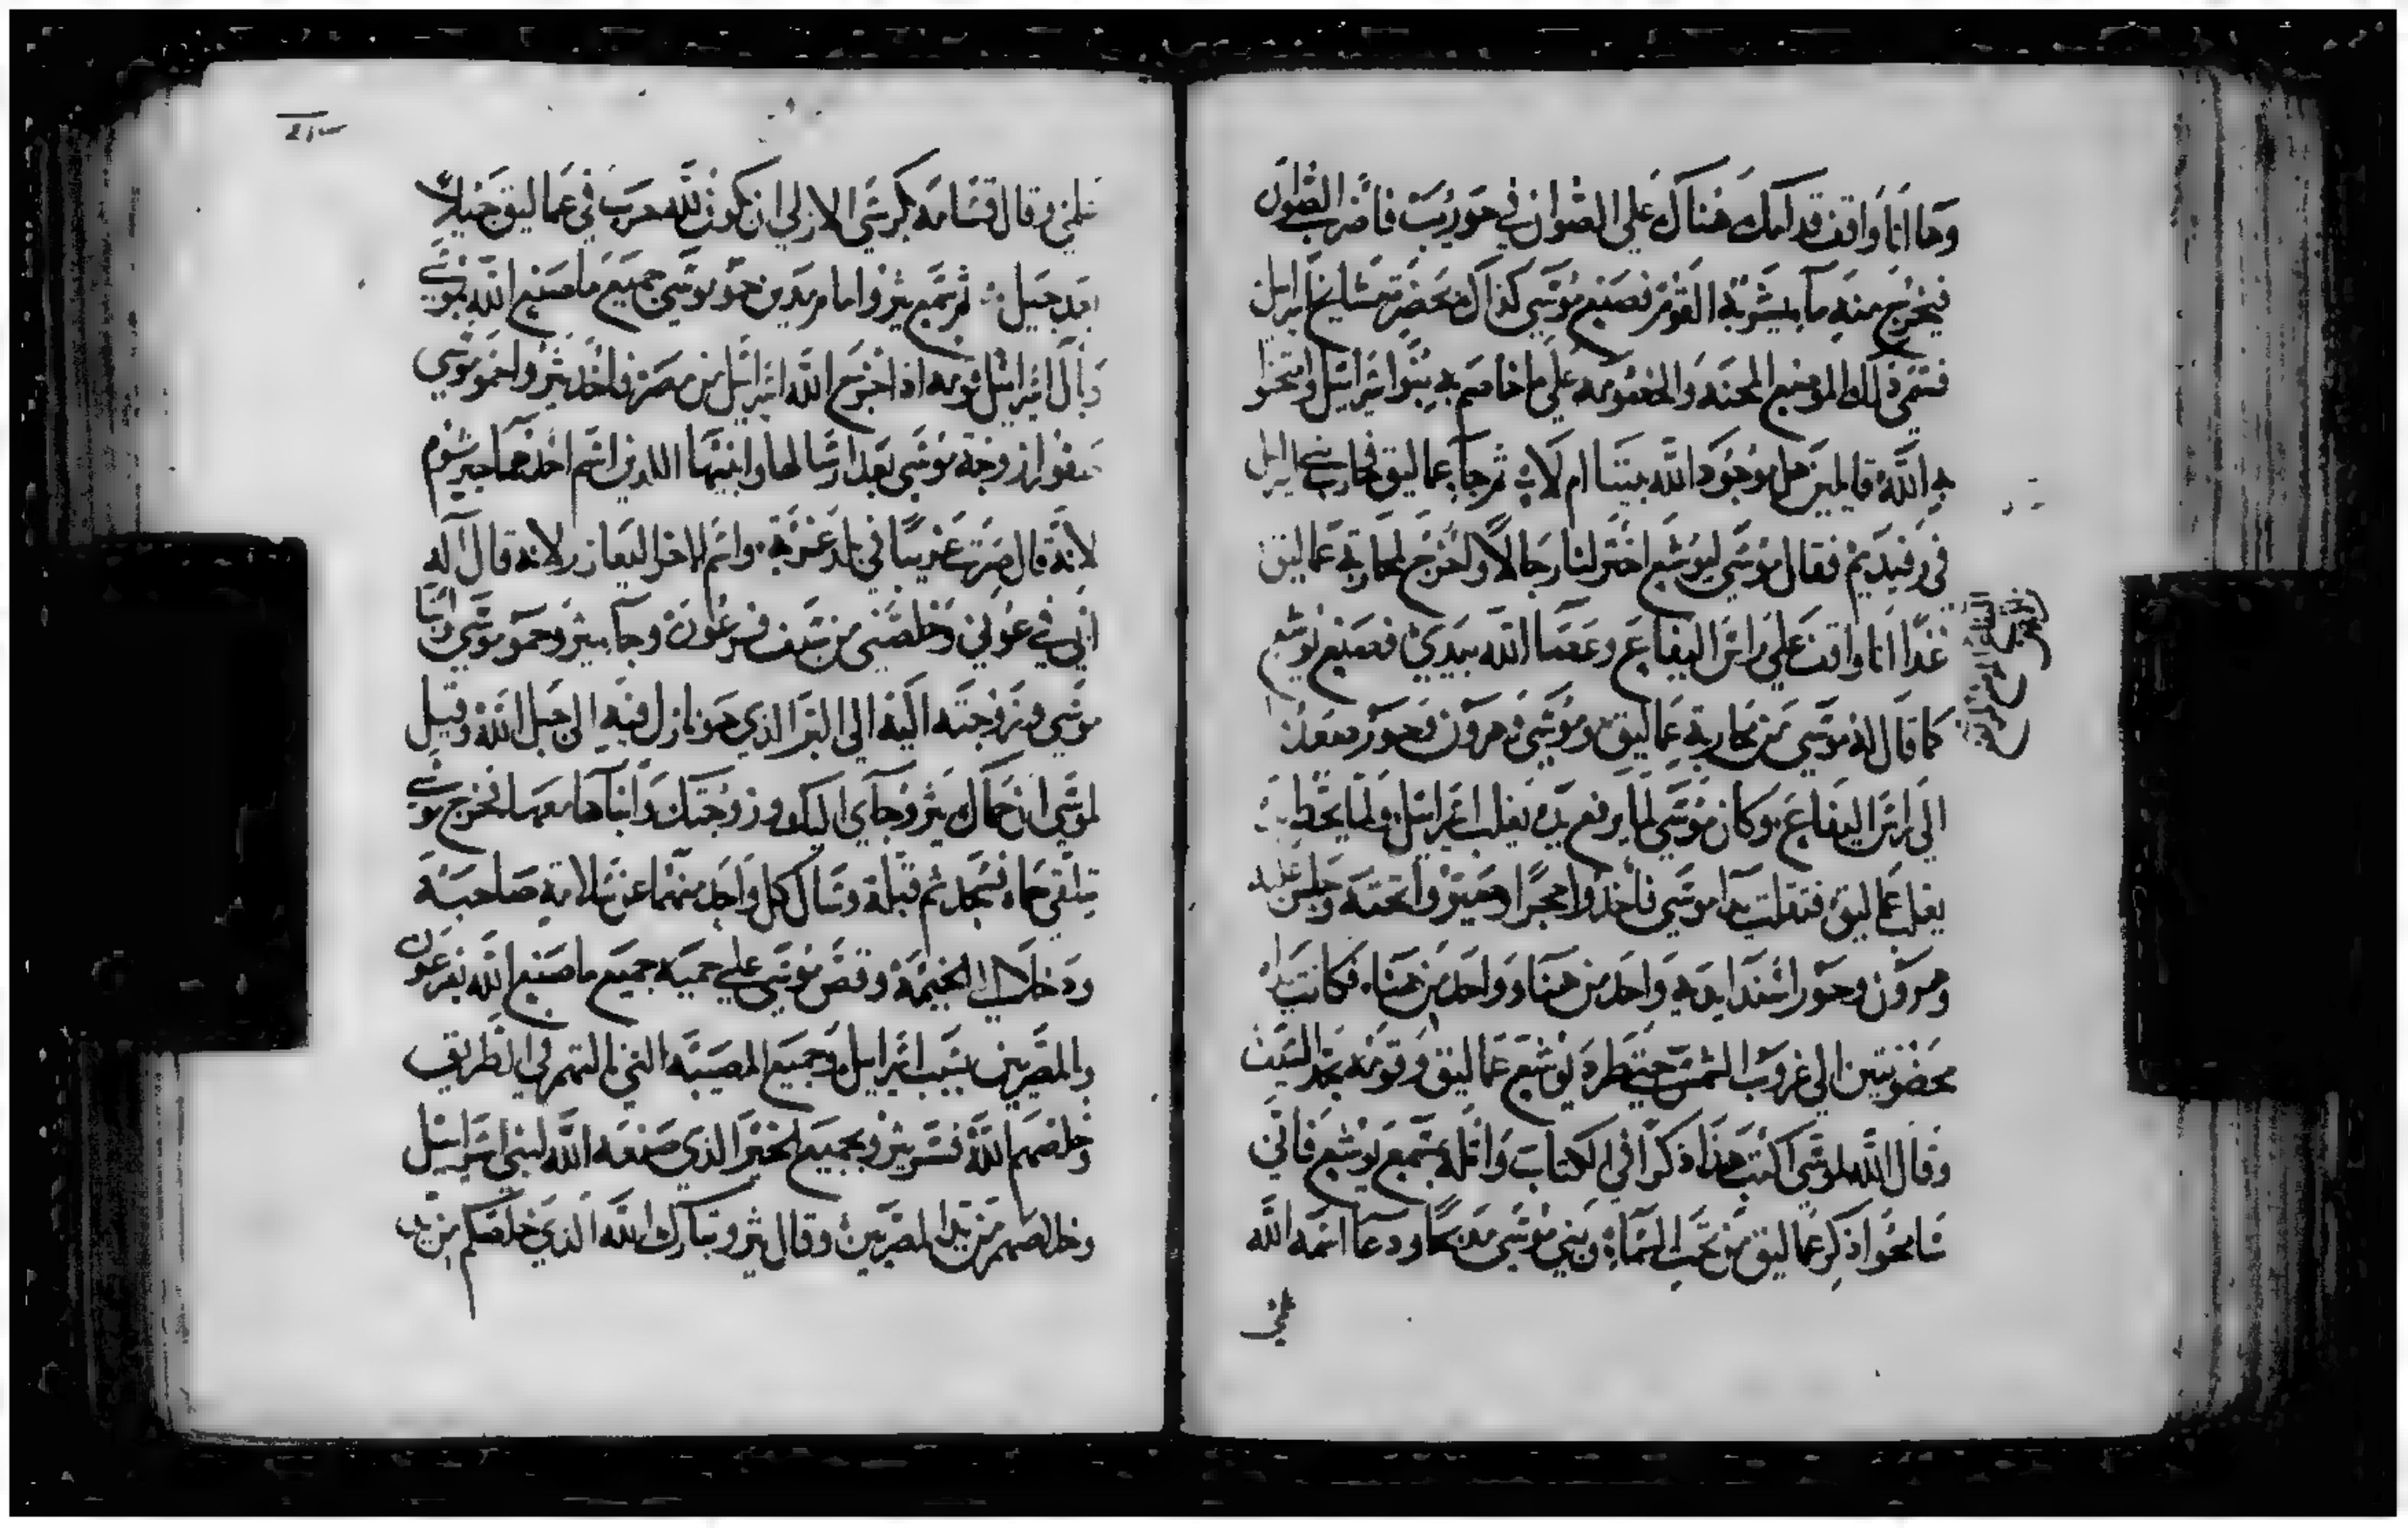 وها انا واقف قدامك هناك على الصوان في حوريب فاضرب الصوان
فيخرج منه ما يشربه القوم فصنع موسى كذاك بحضرة مشايخ اسرايل
فسمى ذلك الموضع المحنه والخصومه على ما خاصم به بنوا اسرائيل وامتحنوا
به الله قايلين هل موجود الله بيننا ام لا ثم جا عماليق فحارب بني اسرايل
في رفيديم فقال موسى ليوشع اختر لنا رجالا ولتخرج لمحاربة عماليق
غدا انا واقف على راس اليفاع وعصا الله بيدي فصنع يوشع
كما قال له موسى من محاربة عماليق وموسى وهرون وحور صعدوا
الى راس اليفاع وكان موسى لما يرفع يده يغلب اسرائيل ولما يحط
يغلب عماليق فثقلت يدا موسى فأخذوا حجرا وصيروا تحته وجلس عليه
وهرون وحور اسندا يديه واحد من هنا وواحد من هنا فكانت يداه
محضونتين الى غروب الشمس حتى طرد يوشع عماليق وقومه بحد السيف
وقال الله لموسى اكتب هذا ذكرا في الكتاب واتله بسمع يوشع فاني
سامحوا ذكر عماليق من تحت السماء وبنى موسى مدبحا ودعا اسمه الله
علمي
علمي وقال قسامه بكرسي الازلي ان يكون لله حرب في عماليق جيلا
بعد جيل ثم سمع يثروا امام مدين حمو موسى جميع ما صنع الله بموسى
وبال اسرائيل قومه اذ اخرج الله اسرائيل من مصر فاخذ يثروا حمو موسى
صفورا زوجة موسى بعد ارسالها وابنيها اللذين اسم احدهما جيرشوم
لانه قال صرت غريبا في بلد غربة واسم الاخر اليعازر لانه قال اله
ابي في عوني وخلصني من سيف فرعون وجا يثروا حمو موسى وابنا
موسى وزوجته اليه الى البر الذي هو نازل فيه الى جبل الله وقيل
لموسى ان حماك يثروا جاي اليك وزوجتك وابناها معها فخرج موسى
تلقى حماه فسجد ثم قبله وسال كل واحد منهما عن سلامة صاحبه
ودخلا الى الخيمة وقص موسى على حميه جميع ما صنع الله بفرعون
والمصريين بسبب اسرايل وجميع المصيبه التي نالتهم في الطريق
وخلصهم الله فسر يثروا بجميع الخير الذي صنعه الله لبني اسرائيل
وخلصهم من يد المصريين وقال يثرو تبارك الله الذي خلصكم من يد